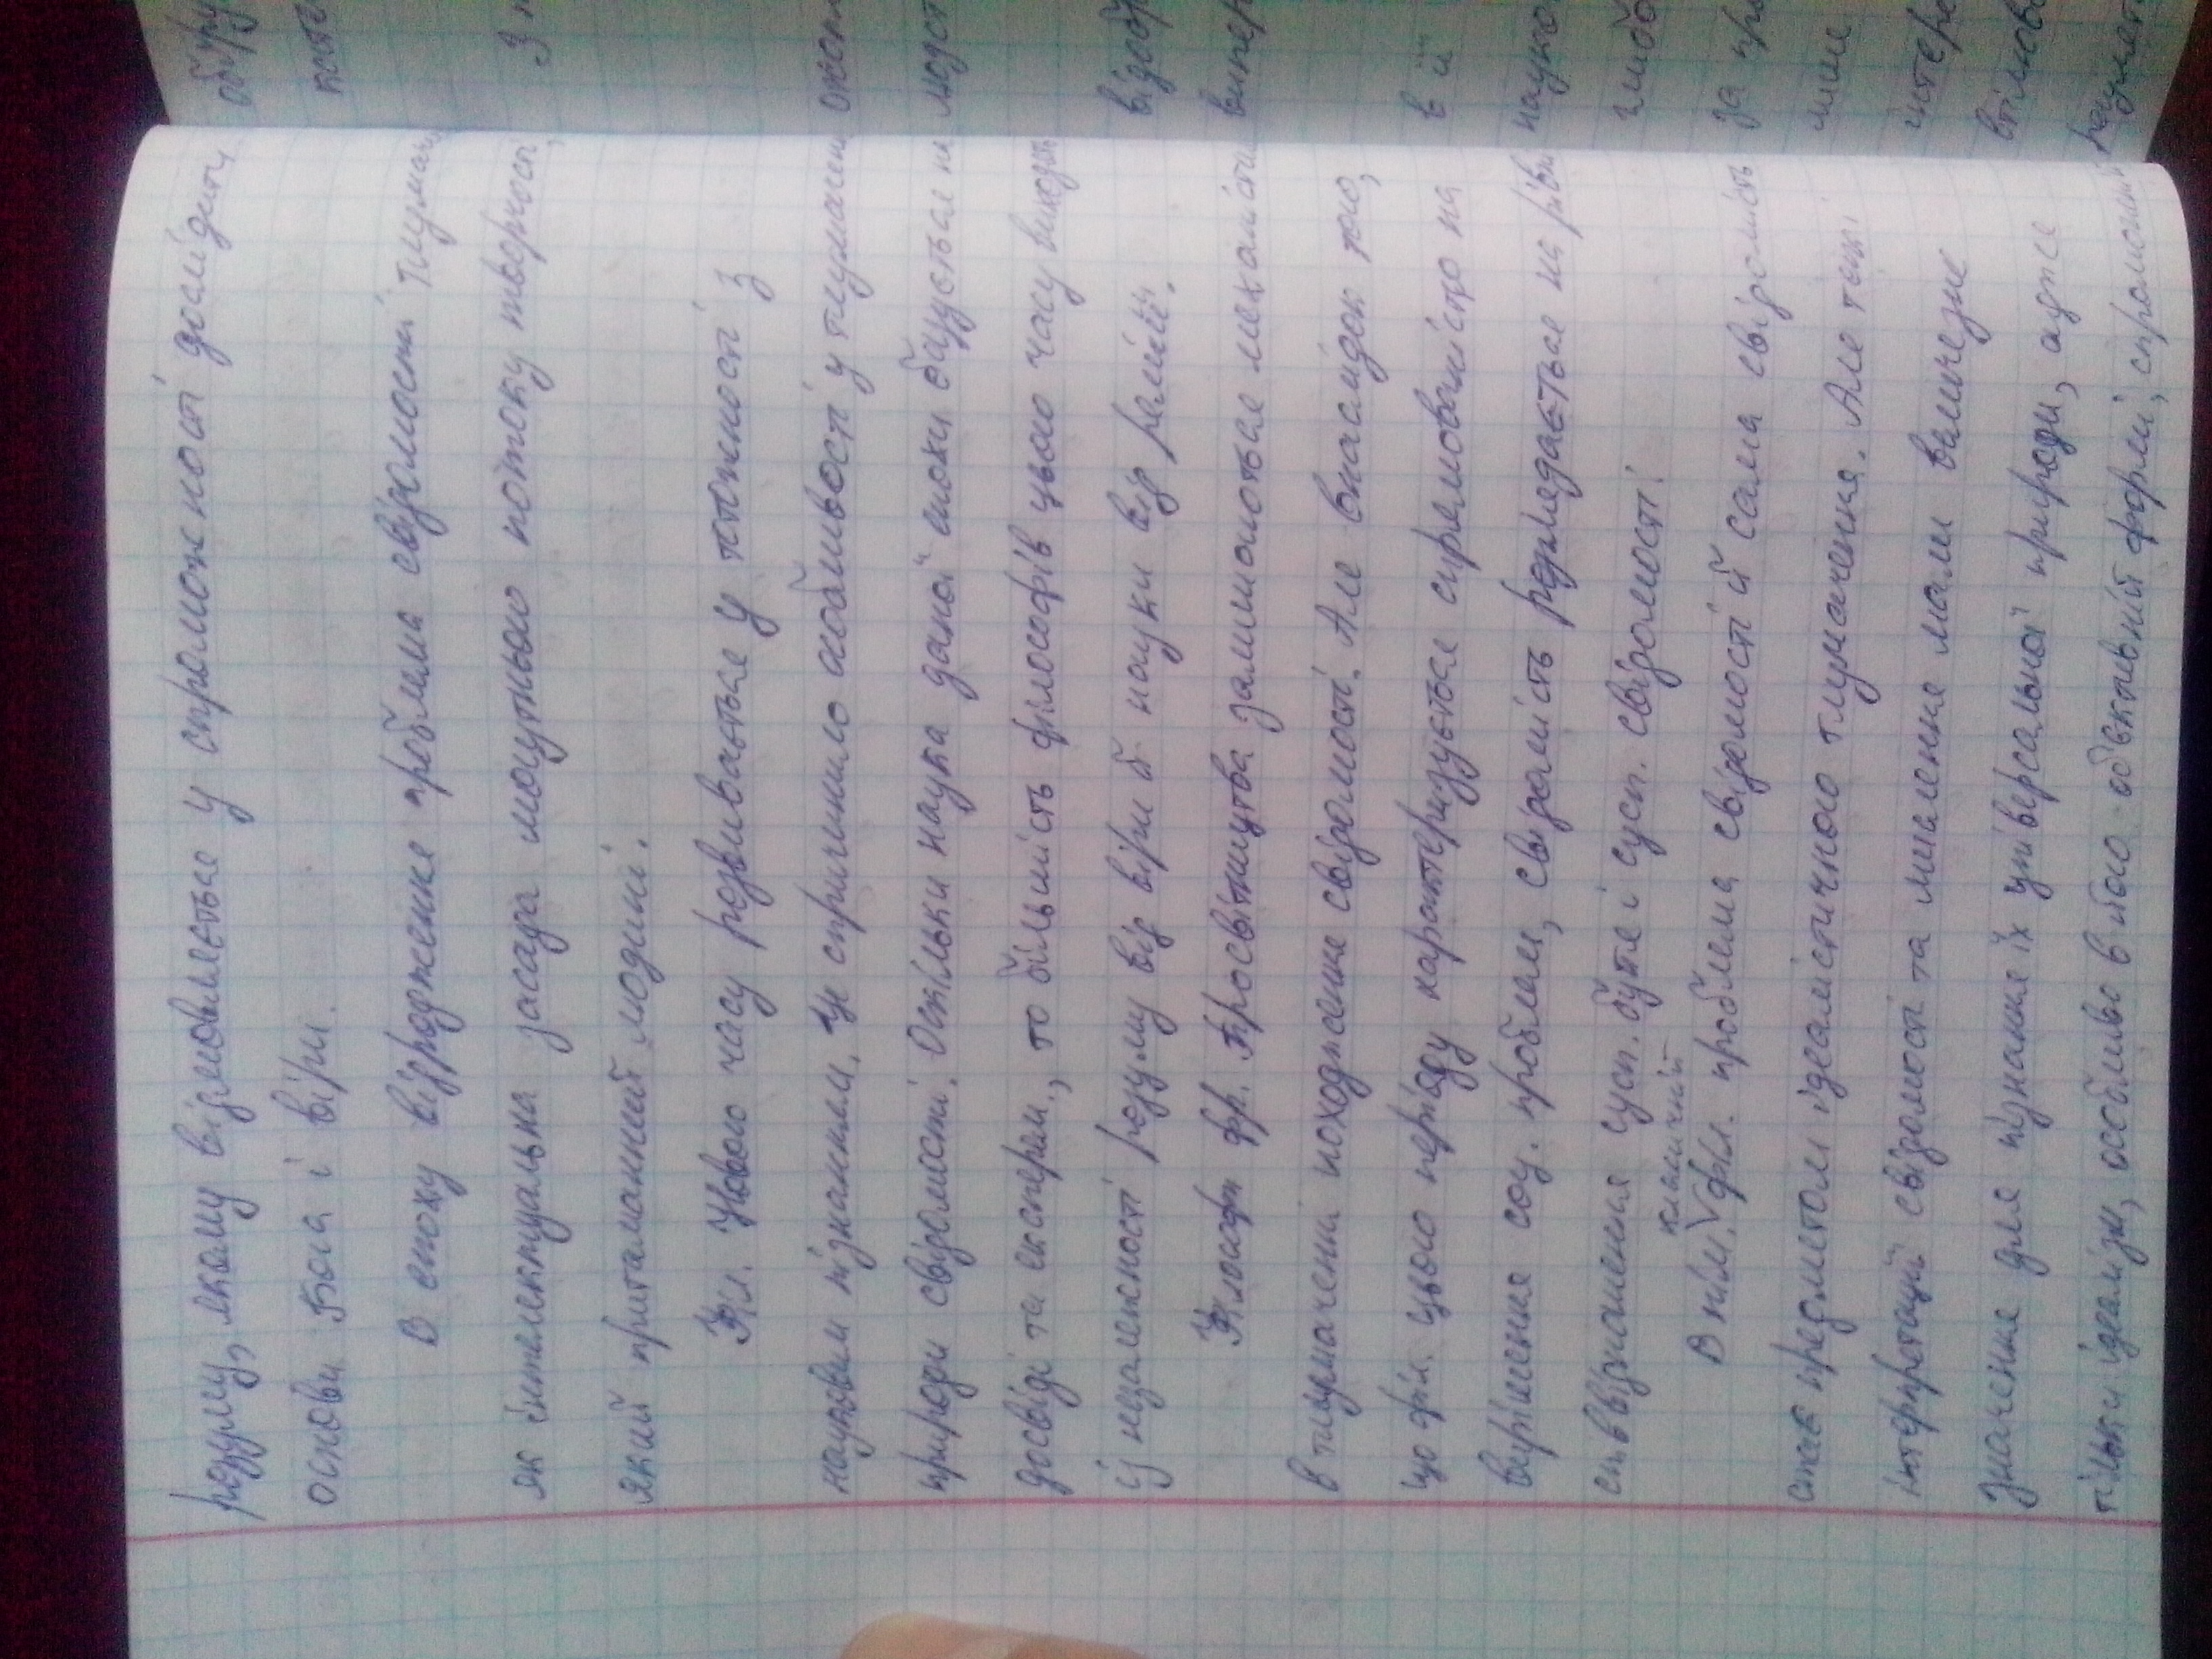 розуму, якому відмовляється у спроможності дослідити
основи Бога і віри.
В епоху відродження проблема свідомості
як інтелектуальна засада могутнього потоку творчості,
який притаманний людині.
Філ. Нового часу розвивається у тотожності з
науковим пізнанням. Це спричинило особливості у
природи свідомості. Оскільки наука даної епохи базується на
досвіді та експерем., то більшість філософів цього часу виходять
із незалежності розуму від віри й науки від релігії.
Філософи фр. Просвітництва залишаються
в тлумаченні походження свідомості. Але внаслідок того,
що філ. цього періоду характеризується спрямованістю на
вирішення соц. проблем, свідомість розглядається на рівні
співвідношення сусп. буття і сусп. свідомості.
В нім. класичній філ. проблема свідомості й сама свідомість
стає предметом ідеалістичного тлумачення. Але такі
інтерпретації свідомості та мислення мали величезне
значення для пізнання їх універсальної природи, адже
тільки ідеалізм, особливо в його об'єктивній формі,